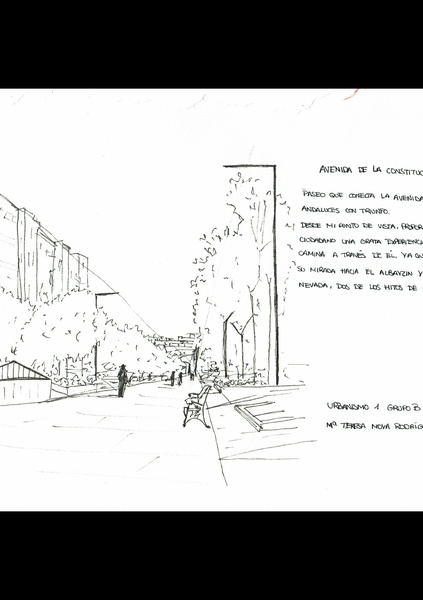 AVENIDA DE LA CONSTITUC
PASEO QUE CONECTA LA AVENIDA
ANDALUCES CON TRIUNFO.
DESDE MI PUNTO DE VISTA, PROPOR
CIUDADANO UNA GRATA EXPERIENCIA
CAMINA A TRAVÉS DE ÉL, YA QU
SU MIRADA HACIA EL ALBAYZIN Y
NEVADA, DOS DE LOS HITOS DE
URBANISMO 1 GRUPO B
Mª TERESA NOVA RODRÍG